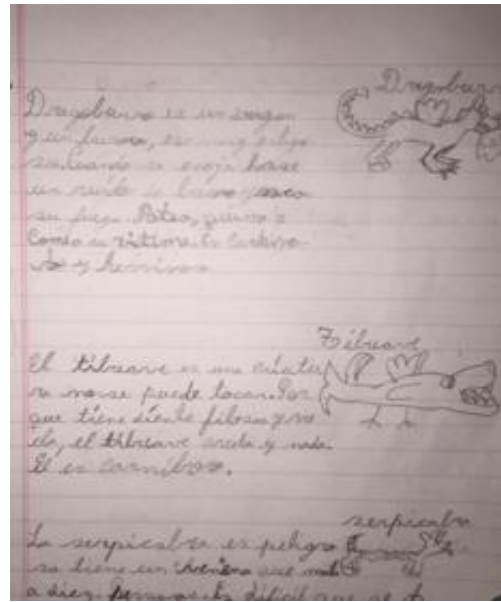 Dragoburro
Dragoburro es un dragon
y un burro, es muy peligro
so. Cuando se enoja hase
un ruido de burro y saca
su fuego. Patea, quema o
Come su vitima. Es Carnivo
y hervivoro
Tibuave
El tibuave es una criatu
ra no se puede tocar. Por
que tiene diente filoso y
el tibuave anda y nada.
El es carníboro.
serpicabra
La serpicabra es peligro
sa tiene un venena que mata
a diez personas. Es dificil que se